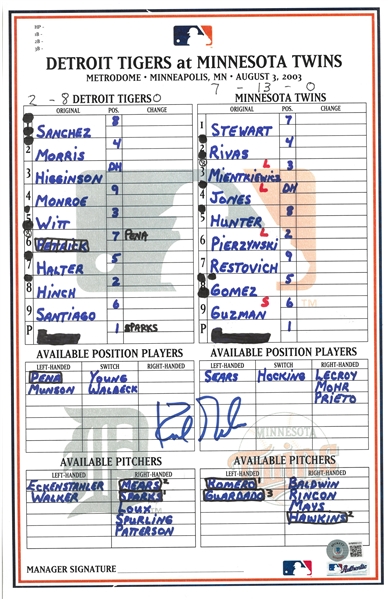 HP -
1B -
2B -
3B -
DETROIT TIGERS at MINNESOTA TWINS
METRODOME • MINNEAPOLIS, MN • AUGUST 3, 2003
2 - 8 DETROIT TIGERS 0
7 - 13 - 0
MINNESOTA TWINS
ORIGINAL POS. CHANGE
ORIGINAL POS. CHANGE
SANCHEZ 8
1 STEWART 7
MORRIS 4
2 RIVAS 4
HIGGINSON DH
3 MIENTKIEWICZ L 3
MONROE 9
4 JONES L DH
WITT 3
5 HUNTER 8
PETRICK 7 PENA
6 PIERZYNSKI L 2
HALTER 5
7 RESTOVICH 9
HINCH 2
8 GOMEZ 5
9 SANTIAGO 6
9 GUZMAN S 6
P 1 SPARKS
P 1
AVAILABLE POSITION PLAYERS
AVAILABLE POSITION PLAYERS
LEFT-HANDED SWITCH RIGHT-HANDED
LEFT-HANDED SWITCH RIGHT-HANDED
PENA YOUNG
SEARS HOCKING LECROY
MUNSON WALBECK
MOHR
PRIETO
MINNESOTA
AVAILABLE PITCHERS
AVAILABLE PITCHERS
LEFT-HANDED RIGHT-HANDED
LEFT-HANDED RIGHT-HANDED
ECKENSTAHLER MEARS 2
ROMERO 1 BALDWIN
WALKER SPARKS 1
GUARDADO 3 RINCON
LOUX
MAYS
SPURLING
HAWKINS 2
PATTERSON
MANAGER SIGNATURE
Authentic